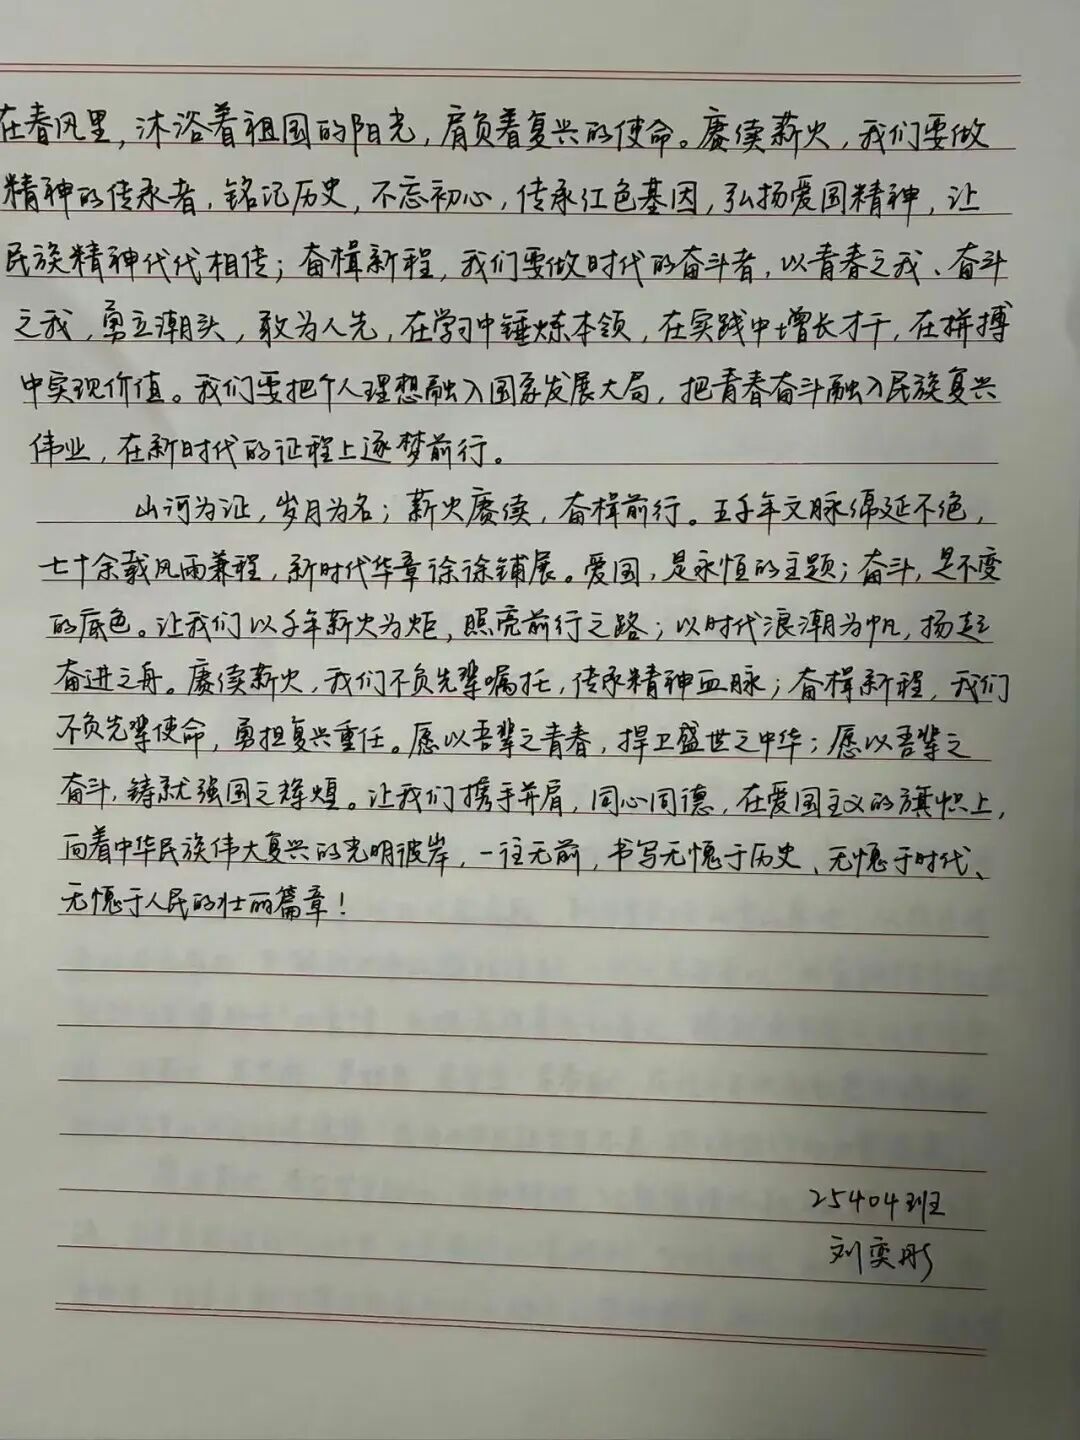 在春风里，沐浴着祖国的阳光，肩负着复兴的使命。赓续薪火，我们要做
精神的传承者，铭记历史，不忘初心，传承红色基因，弘扬爱国精神，让
民族精神代代相传；奋楫新程，我们要做时代的奋斗者，以青春之我、奋斗
之我，勇立潮头，敢为人先，在学习中锤炼本领，在实践中增长才干，在拼搏
中实现价值。我们要把个人理想融入国家发展大局，把青春奋斗融入民族复兴
伟业，在新时代的征程上逐梦前行。
山河为证，岁月为名；薪火赓续，奋楫前行。五千年文脉绵延不绝，
七十余载风雨兼程，新时代华章徐徐铺展。爱国，是永恒的主题；奋斗，是不变
的底色。让我们以千年薪火为炬，照亮前行之路；以时代浪潮为帆，扬起
奋进之舟。赓续薪火，我们不负先辈嘱托，传承精神血脉；奋楫新程，我们
不负先辈使命，勇担复兴重任。愿以吾辈之青春，捍卫盛世之中华；愿以吾辈之
奋斗，铸就强国之辉煌。让我们携手并肩，同心同德，在爱国主义的旗帜上，
向着中华民族伟大复兴的光明彼岸，一往无前，书写无愧于历史、无愧于时代、
无愧于人民的壮丽篇章！
25404班
刘奕彤